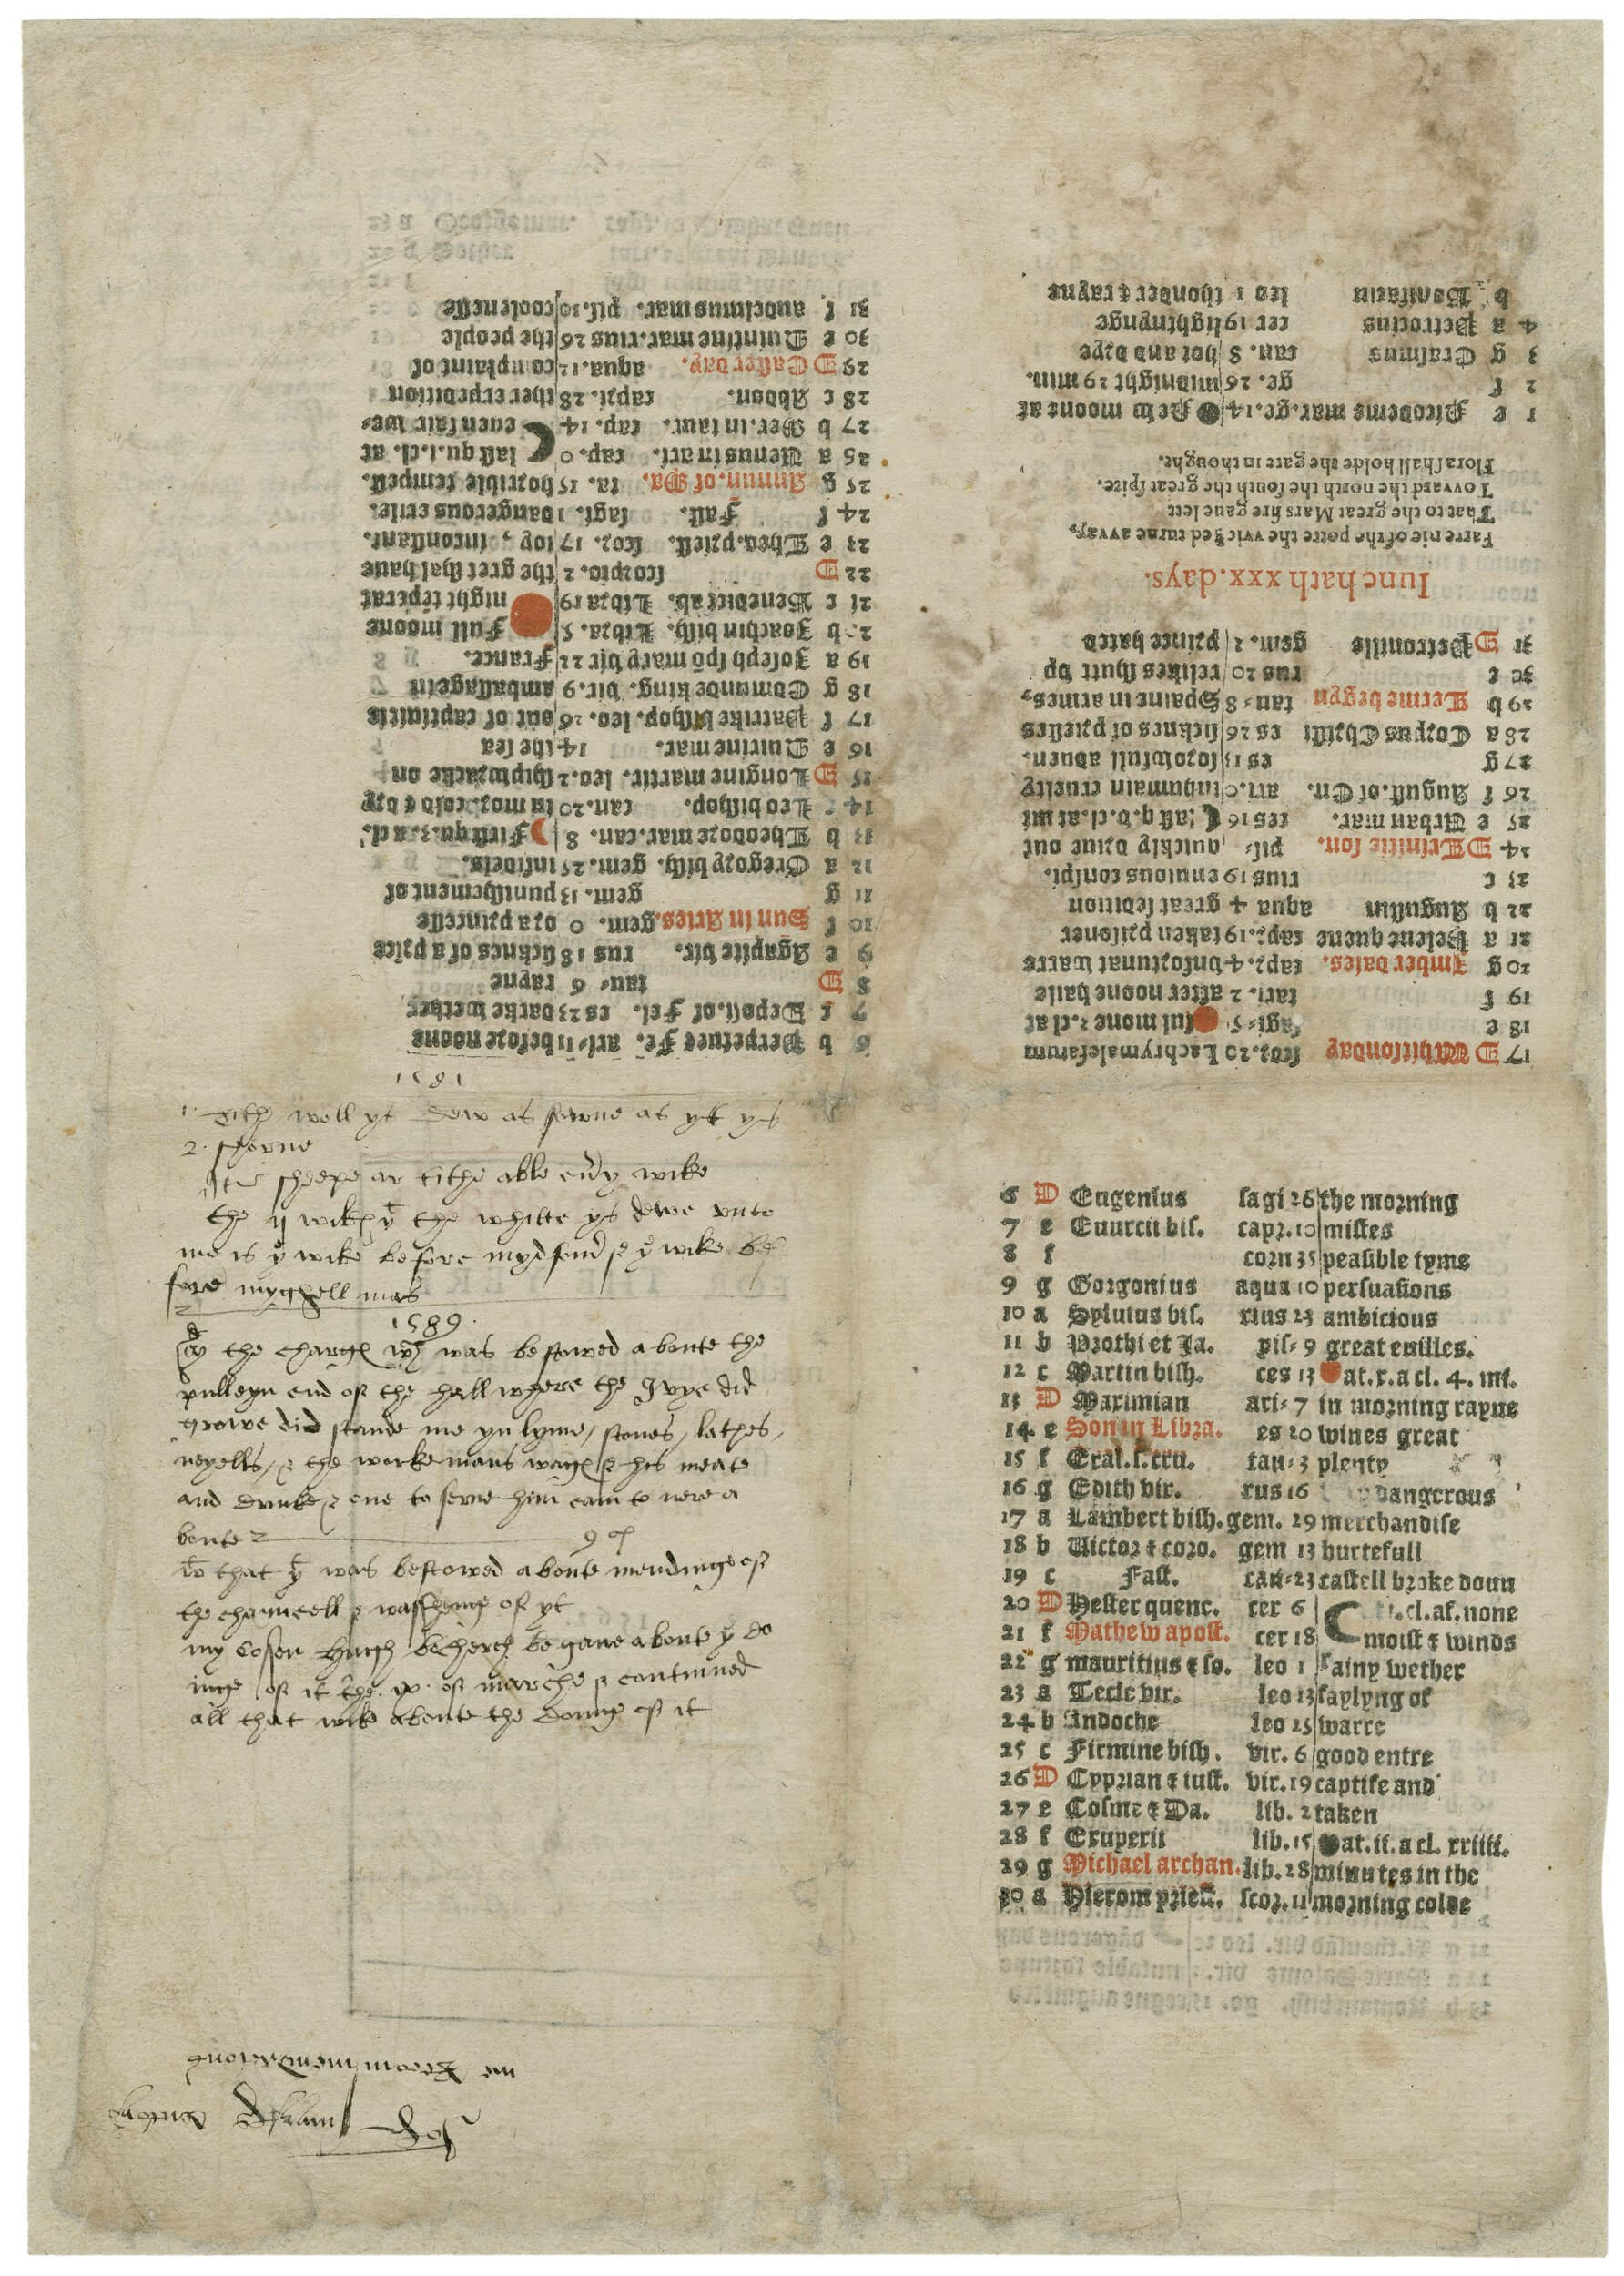 6 b Perpetuee Fe. ari- 11 before noone
7 c Deposi. of Fel. es 23 darke wether
8 D tau- 6 rayne
9 e Agapite vir. rus 18 sicknes of a price
10 f Sun in Aries. gem. 0 or a princesse
11 g gem. 13 punishement of
12 a Gregory bish. gem. 25 infidels.
13 b Theodore mar. can. 8 First qu. 3. a cl.
14 c Leo bishop. can. 20 in mor. cold & dry
15 D Longine martir. leo. 2 shipwracke on
16 e Quirine mar. 14 the sea
17 f Patrike bishop. leo. 26 out of captiuitie
18 g Edmunde king. vir. 9 ambassage in
19 a Joseph spō mary vir 22 France.
20 b Joachin bish. Libra. 5 Full moone
21 c Benedict ab. Libra 19 night tēperat
22 D scorpio. 2 the gret shal haue
23 e Theo. priest. scor. 17 ioy, inconstant.
24 f Fast. sagi. 1 dangerous exile.
25 g Annun. of Ma. sa. 15 horrible tempest.
26 a Uenus in ari. cap. 0 last qu. i. cl. at
27 b Mer. in taur. cap. 14 euen fair we-
28 c Abdon. capri. 28 ther expedition
29 D Easter day. aqua. 12 complaint of
30 e Quintine mar. rius 26 the people
31 f anselmus mar. pis. 10 coolenesse
17 D Whitsonday scor. 20 Lachrymalefatum
18 e sagi- 5 ful mone 2. cl at
19 f tari. 2 after noone haile
20 g Imber daies. capr. 4 vnfortunat warre
21 a Helene quene capr. 19 taken prisoner
22 b Augustin aqua 4 great sedition
23 c rius 19 enuious conspi.
24 D Trinitie son. pis- quickly driue out
25 e Urban mar. ces 16 last q. v. cl. at mi
26 f August. of En. ari. 0 inhumain cruelty
27 g es 13 sorowfull aduen.
28 a Corpus Christi es 26 sicknes of priestes
29 b Terme begyn tau- 8 Spaine in armes,
30 c rus 20 relikes shutt vp
31 D Petronille gem. 2 prince hated
Iune hath xxx. days.
Farre nie of the porte the vvicked turne avvay,
That to the great Mars fire gaue lett
Tovvard the north the south the great spite.
Flora shall holde the gate in thought.
1 e Nicodeme mar. ge. 14 New moone at
2 f ge. 26 midnight 29 min.
3 g Erasmus can. 8 hot and drye
4 a Petrocius cer 19 lightnynge
b Bonifacius leo 1 thonder & rayne
1581
1. Tith woll ys dew as sowne as yt ys
2. shorne
Itē sheepe ar tithe able eūy wike
the ij wikes yt the whitte ys dewe vnto
me is ye wike before mydsomer & ye wike be
fore myghell mas
1589.
the charges wch was bestowed aboute the
pulleyn end of the hall where the Ivye did
growe did stande me yn lyme, stones, lathes,
neyells, & the workemans wages & his meate
and drinke & one to serve him cam to nere a
boute
that yt was bestowed aboute mendinge of
the chauncell & washeing of yt
my Cosen Hugh begane aboute ye do
inge of it the ix of marche & continued
all that wike aboute the doing of it
6 D Eugenius sagi 26 the morning
7 e Euurcii bis. capr. 10 mistes
8 f corn 35 peasible tyms
9 g Gorgonius aqua 10 persuasions
10 a Syluius bis. rius 23 ambicious
11 b Prothi et Ja. pis- 9 great euilles.
12 c Martin bish. ces 13 at. x. a cl. 4. mi.
13 D Maximian ari- 7 in morning rayne
14 e Son in Libra. es 20 wines great
15 f Exal. s. cru. tau- 3 plenty
16 g Edith vir. rus 16 dangerous
17 a Lambert bish. gem. 29 merchandise
18 b Uictor & coro. gem 13 hurtefull
19 c Fast. can- 23 castell broke doun
20 D Hester quene. cer 6 cl. af. none
21 f Mathew apost. cer 18 moist & winds
22 g mauritius & so. leo 1 rainy wether
23 a Tecle vir. leo 13 faylyng of
24 b Andoche leo 25 warre
25 c Firmine bish. vir. 6 good entre
26 D Cyprian & iust. vir. 19 captife and
27 e Cosme & Da. lib. 2 taken
28 f Exuperii lib. 15 at. ii. a cl. xxiiii.
29 g Michael archan. lib. 28 minutes in the
30 a Hierom priest. scor. 11 morning colde
me Recommendations